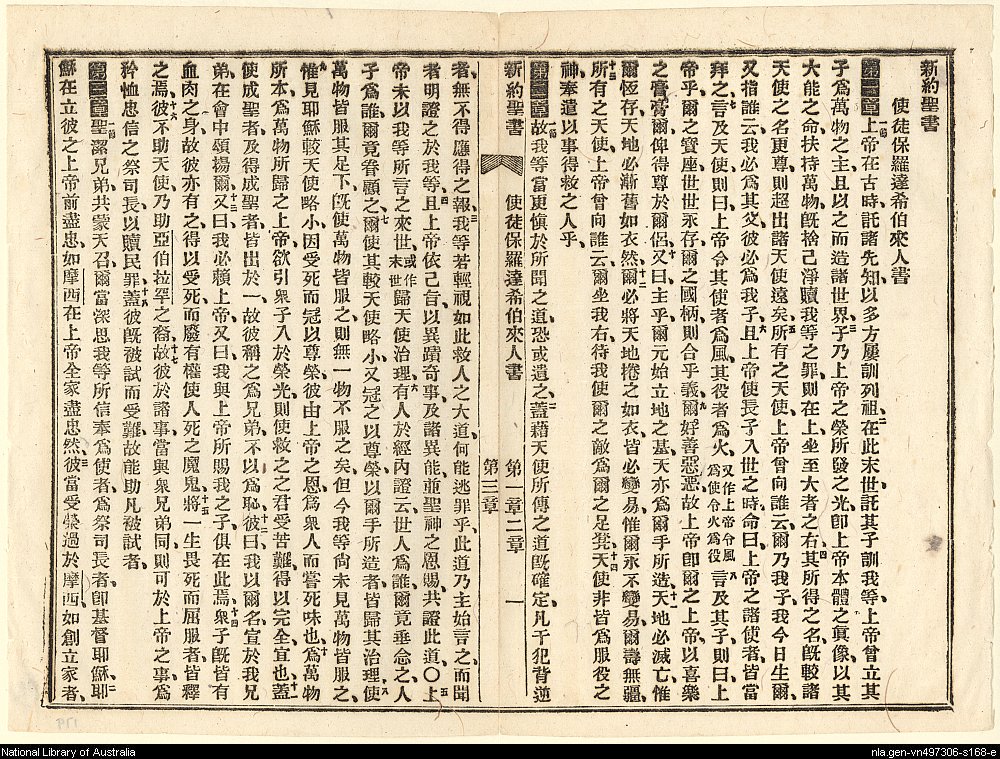 新約聖書
使徒保羅達希伯來人書
第一章一節上帝在古時託諸先知以多方屢訓列祖、二在此末世託其子訓我等、上帝曾立其
子爲萬物之主且以之而造諸世界、三子乃上帝之榮所發之光、卽上帝本體之眞像、以其
大能之命扶持萬物旣捨己淨贖我等之罪則在上坐至大者之右、四其所得之名旣較諸
天使之名更尊則超出諸天使遠矣、五所有之天使、上帝曾向誰云、爾乃我子、我今日生爾、
又指誰云、我必爲其父、彼必爲我子、六且上帝使長子入世之時、命曰、上帝之諸使者皆當
拜之、七言及天使則曰、上帝令其使者爲風、其役者爲火、又作上帝令風爲使令火爲役八言及其子、則曰、上
帝乎、爾之寶座、世世永存、爾之國柄則合乎義、九爾好善惡惡、故上帝卽爾之上帝、以喜樂
之膏膏爾、俾得尊於爾侶、十又曰、主乎、爾元始立地之基、天亦爲爾手所造、十一天地必滅亡、惟
爾恆存、天地必漸舊如衣然、十二爾必將天地捲之如衣、皆必變易、惟爾永不變易、爾壽無疆、
十三所有之天使、上帝曾向誰云、爾坐我右、待我使爾之敵爲爾之足凳、十四天使非皆爲服役之
神、奉遣以事得救之人乎、
第二章一節故我等當更愼於所聞之道、恐或遺之、二蓋藉天使所傳之道旣確定、凡干犯背逆
新約聖書 使徒保羅達希伯來人書 第一章二章 一
第三章
者、無不得應得之報、三我等若輕視如此救人之大道、何能逃罪乎、此道乃主始言之、而聞
者明證之於我等、四且上帝依己旨、以異蹟奇事、及諸異能、並聖神之恩賜、共證此道、○五上
帝未以我等所言之來世、或作末世歸天使治理、六有人於經內證云、世人爲誰、爾竟垂念之、人
子爲誰、爾竟眷顧之、七爾使其較天使略小、又冠之以尊榮、以爾手所造者、皆歸其治理、八使
萬物皆服其足下、旣使萬物皆服之、則無一物不服之矣、但今我等尙未見萬物皆服之、
九惟見耶穌較天使略小、因受死而冠以尊榮、彼由上帝之恩、爲衆人而嘗死味也、十爲萬物
所本、爲萬物所歸之上帝、欲引衆子入於榮光、則使救之之君、受苦難得以完全、宜也、十一蓋
使成聖者、及得成聖者、皆出於一、故彼稱之爲兄弟、不以爲恥、十二彼曰、我以爾名、宣於我兄
弟、在會中頌揚爾、十三又曰、我必賴上帝、又曰、我與上帝所賜我之子、俱在此焉、十四衆子旣皆有
血肉之身、故彼亦有之、得以受死、而廢有權使人死之魔鬼、十五將一生畏死而屈服者皆釋
之焉、十六彼不助天使、乃助亞伯拉罕之裔、十七故彼於諸事當與衆兄弟同、則可於上帝之事、爲
矜恤忠信之祭司長、以贖民罪、十八蓋彼旣被試而受難、故能助凡被試者、
第三章一節聖潔兄弟、共蒙天召、爾當深思我等所信奉爲使者、爲祭司長者、卽基督耶穌、二耶
穌在立彼之上帝前盡忠、如摩西在上帝全家盡忠然、三彼當受榮過於摩西、如創立家者、
National Library of Australia
nla.gen-vn497306-s168-e